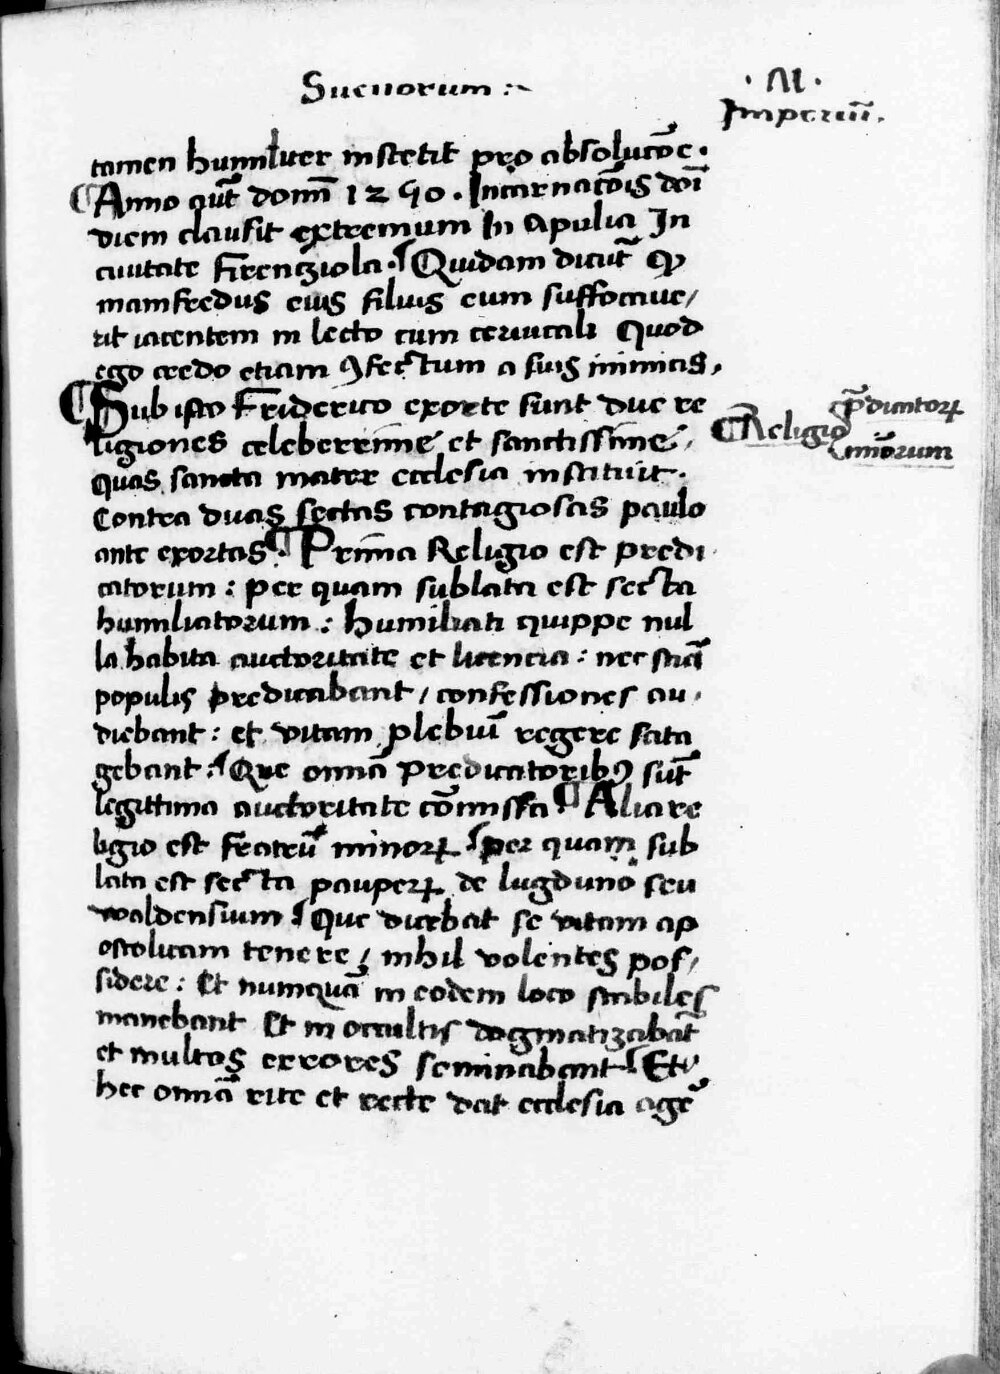 Sueuorum :~
· VI ·
Imperiū.
tamen humiliter institit pro absolucōe .
¶ Anno qūt domī 1250 . Incarnatōis doī
diem clausit extremum In Apulia In
ciuitate Firenziola . ¶ Quidam dicūt ꝙ
mamfredus eius filius eum suffocaue/
rit iacentem in lecto cum ceruicali Quod
ego credo etiam ꝯfectum a suis inimicis,
¶ Sub isto Friderico exorte sunt due re
ligiones celeberrime et sanctissime,
quas sancta mater ecclesia instituit .
Contra duas sectas contagiosas paulo
ante exortas. ¶ Prima Religio est predi
catorum : per quam sublata est secta
humiliatorum : humiliati quippe nul
la habita auctoritate et licencia : nec
populis predicabant / confessiones au
diebant : et vitam plebiuꝫ regere sata
gebant : ¶ Que omīa Predicatoribꝰ sūt
legittima auctoritate cōmissa ¶ Alia re
ligio est fratrū minorꝝ ¶ per quam sub
lata est secta pauperꝝ de lugduno seu
waldensium ¶ Que dicebat se vitam ap
ostolicam tenere / nihil volentes pos/
sidere : Et numquā in eodem loco stabiles
manebant Et in occultis dogmatizabāt
et multos errores seminabant ¶ Et
hec omīa rite et recte dat ecclesia agē
¶ Religio
p̄dicatorꝝ
minorum